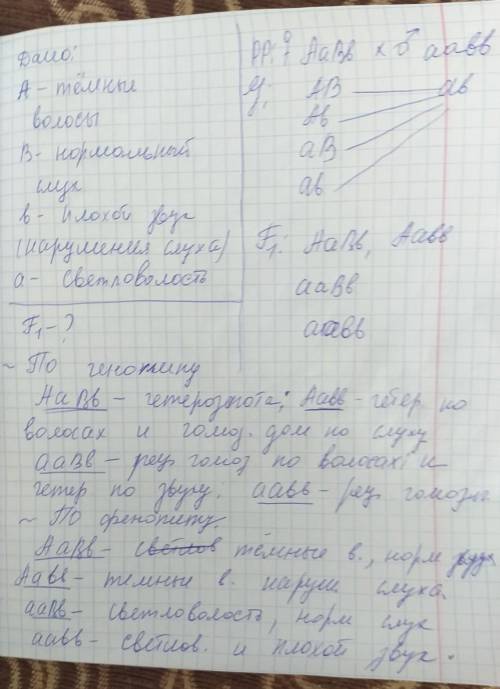 Дано:
А - тёмные
волосы
В - нормальный
слух
в - плохой звук
(нарушения слуха)
а - светловолость
F₁ - ?
PP: ♀ АаВв × ♂ аавв
G: АВ ав
Ав
аВ
ав
F₁: АаВв, Аавв
ааВв
аавв
~ По генотипу
АаВв - гетерозигота; Аавв - гетер по
волосах и гомоз. дом по слуху
ааВв - рец гомоз по волосах и
гетер по звуку. аавв - рец гомозиг
~ По фенотипу.
АаВв - светлов тёмные в., норм звук
Аавв - темные в. наруш. слуха.
ааВв - светловолость, норм слух
аавв - светлов. и плохой звук.